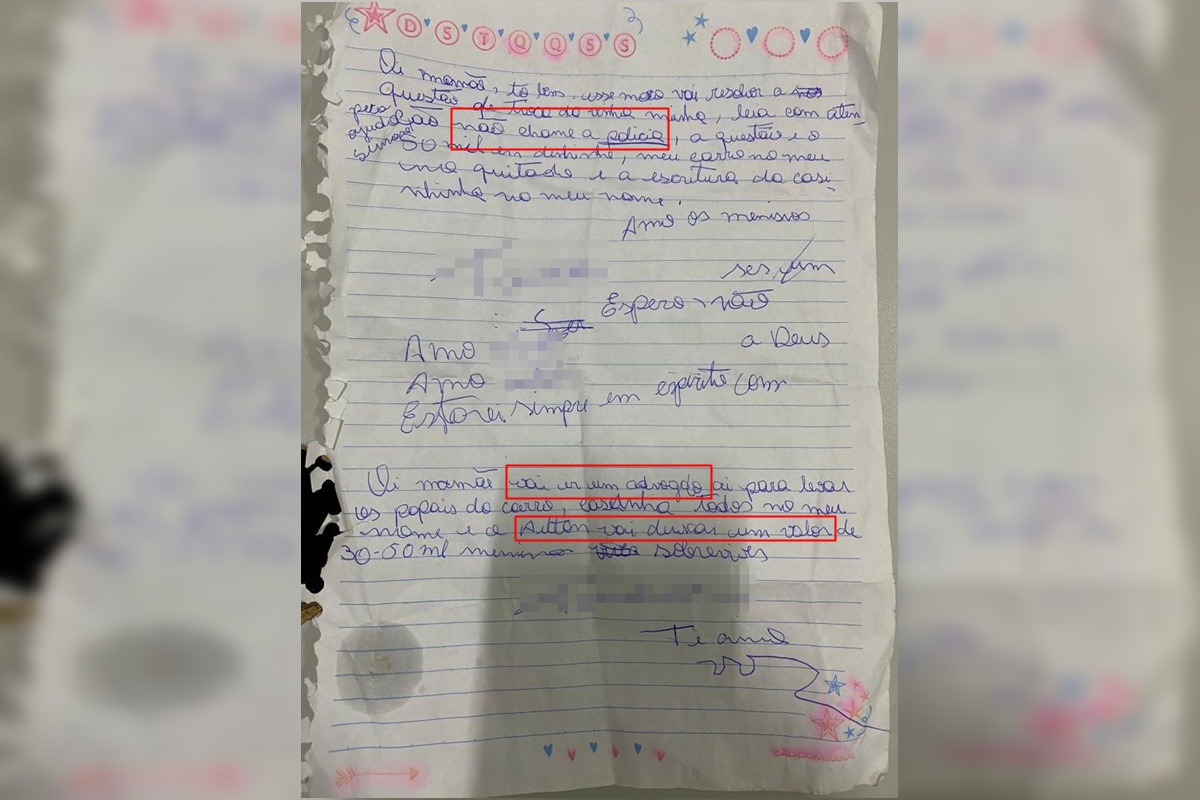 D S T Q Q S S
Oi mamãe, tô bem, esse moço vai resolver a
questão de troca da minha, leia com aten
peço ção não chame a policia, a questão e o
ajuda 50 mil em dinheiro, meu carro no meu
quitado e a escritura da casi-
nhinha no meu nome.
Amo os meninos
Espero não
Amo a Deus
Amo
Estarei sempre em espirito com
Oi mamãe vai ir um advogado ai para levar
os papais do carro, casinha todos no meu
nome e o Ailton vai deixar um valor de
30-50 mil
Te amo